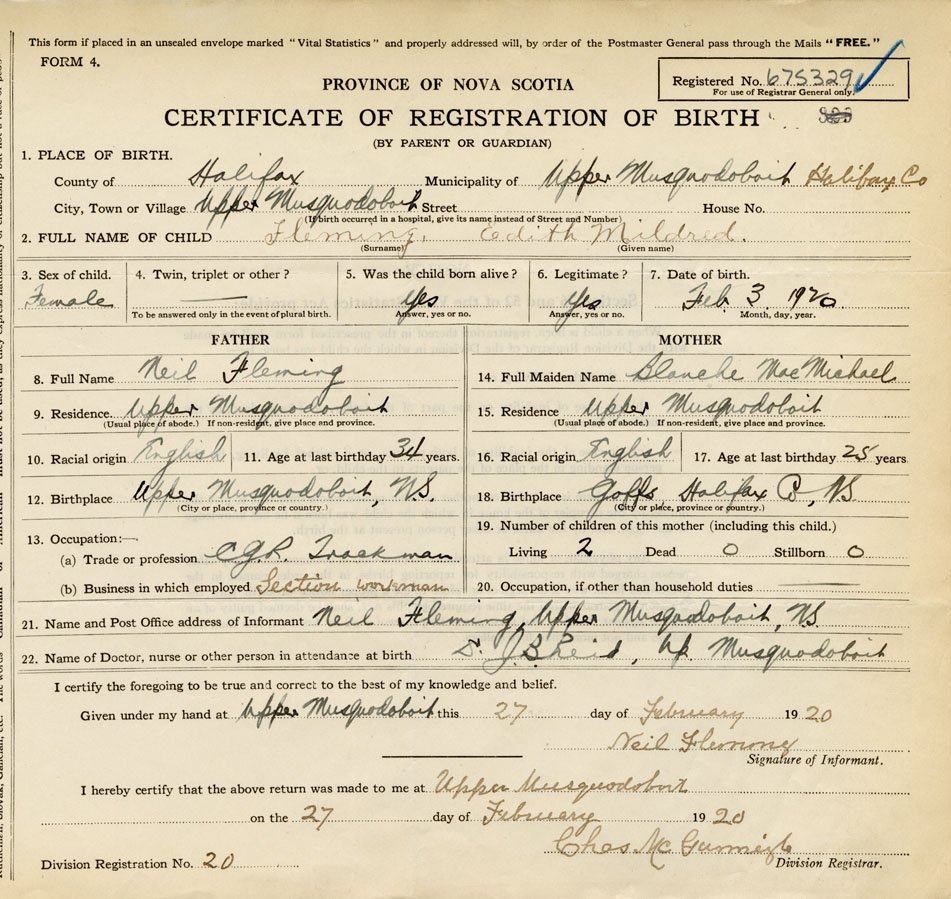 This form if placed in an unsealed envelope marked "Vital Statistics" and properly addressed will, by order of the Postmaster General pass through the Mails "FREE."
FORM 4.
Registered No. 675329
For use of Registrar General only.
PROVINCE OF NOVA SCOTIA
CERTIFICATE OF REGISTRATION OF BIRTH
(BY PARENT OR GUARDIAN)
1. PLACE OF BIRTH.
County of Halifax Municipality of Upper Musquodoboit Halifax Co
City, Town or Village Upper Musquodoboit Street House No.
(If birth occurred in a hospital, give its name instead of Street and Number)
2. FULL NAME OF CHILD Fleming, Edith Mildred.
(Surname) (Given name)
3. Sex of child. 4. Twin, triplet or other? 5. Was the child born alive? 6. Legitimate? 7. Date of birth.
Female Yes Yes Feb 3 1920
To be answered only in the event of plural birth. Answer, yes or no. Answer, yes or no. Month, day, year.
FATHER
8. Full Name Neil Fleming
9. Residence. Upper Musquodoboit
(Usual place of abode.) If non-resident, give place and province.
10. Racial origin English 11. Age at last birthday 34 years.
12. Birthplace Upper Musquodoboit, N.S.
(City or place, province or country.)
13. Occupation:—
(a) Trade or profession C.G.R. Trackman
(b) Business in which employed Section workman
MOTHER
14. Full Maiden Name Blanche MacMichael
15. Residence Upper Musquodoboit
(Usual place of abode.) If non-resident, give place and province.
16. Racial origin English 17. Age at last birthday 25 years.
18. Birthplace Goffs, Halifax Co, NS
(City or place, province or country.)
19. Number of children of this mother (including this child.)
Living 2 Dead 0 Stillborn 0
20. Occupation, if other than household duties
21. Name and Post Office address of Informant Neil Fleming, Upper Musquodoboit, NS.
22. Name of Doctor, nurse or other person in attendance at birth Up. Musquodoboit
I certify the foregoing to be true and correct to the best of my knowledge and belief.
Given under my hand at Upper Musquodoboit this 27 day of February 1920
Neil Fleming
Signature of Informant.
I hereby certify that the above return was made to me at Upper Musquodoboit
on the 27 day of February 1920
Chas
Division Registration No. 20 Division Registrar.